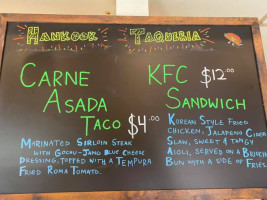 Hankook Taqueria
Carne
Asada
Taco $4.00
Marinated Sirloin Steak
with Gochu-Jang Blue Cheese
Dressing, topped with a Tempura
Fried Roma Tomato.
KFC $12.00
Sandwich
Korean Style Fried
Chicken, Jalapeno Cider
Slaw, Sweet & Tangy
Aioli, served on a Brioche
Bun with a side of Fries